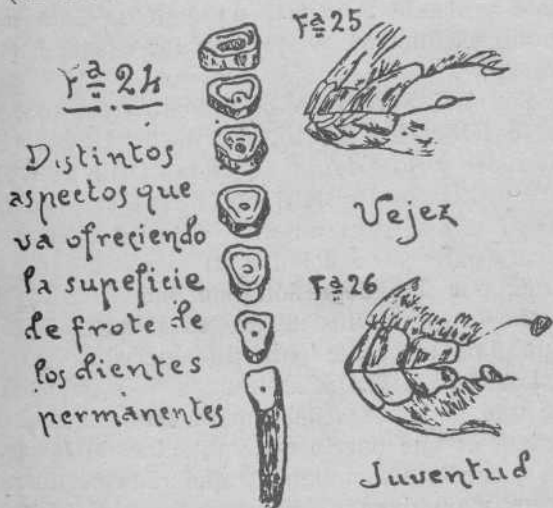 Fª 24
Distintos
aspectos que
va ofreciendo
la supeficie
de frote de
los dientes
permanentes
Fª 25
Vejez
Fª 26
Juventud